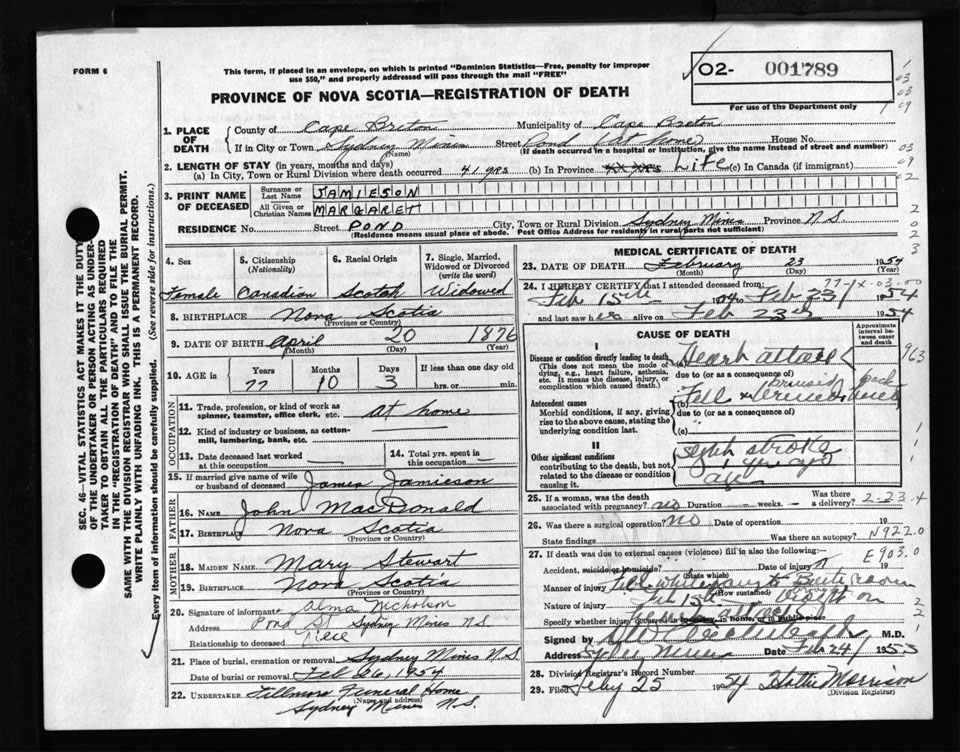 FORM 6
This form, if placed in an envelope, on which is printed "Dominion Statistics—Free, penalty for improper
use $50," and properly addressed will pass through the mail "FREE"
02- 001789
For use of the Department only
PROVINCE OF NOVA SCOTIA—REGISTRATION OF DEATH
1. PLACE OF DEATH
County of Cape Breton Municipality of Cape Breton
If in City or Town Sydney Mines (Name) Street Pond House No.
(If death occurred in a hospital or institution, give the name instead of street and number)
2. LENGTH OF STAY (in years, months and days)
(a) In City, Town or Rural Division where death occurred 41 yrs (b) In Province Life (c) In Canada (if immigrant)
3. PRINT NAME OF DECEASED
Surname or Last Name JAMIESON
All Given or Christian Names MARGARET
RESIDENCE No. Street POND City, Town or Rural Division Sydney Mines Province N.S.
(Residence means usual place of abode. Post Office Address for residents in rural parts not sufficient)
4. Sex
Female
5. Citizenship (Nationality)
Canadian
6. Racial Origin
Scotch
7. Single, Married, Widowed or Divorced (write the word)
Widowed
8. BIRTHPLACE Nova Scotia
(Province or Country)
9. DATE OF BIRTH April 20 1876
(Month) (Day) (Year)
10. AGE IN
Years Months Days If less than one day old
77 10 3 hrs. or min.
OCCUPATION
11. Trade, profession, or kind of work as
spinner, teamster, office clerk, etc. at home
12. Kind of industry or business, as cotton-
mill, lumbering, bank, etc.
13. Date deceased last worked
at this occupation
14. Total yrs. spent in
this occupation
15. If married give name of wife
or husband of deceased James Jamieson
FATHER
16. NAME John MacDonald
17. BIRTHPLACE Nova Scotia
(Province or Country)
MOTHER
18. MAIDEN NAME Mary Stewart
19. BIRTHPLACE Nova Scotia
(Province or Country)
20. Signature of informant Alma Nicholson
Address Pond St Sydney Mines N.S
Relationship to deceased
21. Place of burial, cremation or removal Sydney Mines N.S.
Date of burial or removal Feb 26, 1954
22. UNDERTAKER Fillmore Funeral Home
(Name and address)
Sydney Mines N.S.
MEDICAL CERTIFICATE OF DEATH
23. DATE OF DEATH February 23 1954
(Month) (Day) (Year)
24. I HEREBY CERTIFY that I attended deceased from:
Feb 15th to Feb 23 1954
and last saw her alive on Feb 23rd 1954
CAUSE OF DEATH
Approximate interval between onset and death
I
Disease or condition directly leading to death
(This does not mean the mode of dying, e.g. heart failure, asthenia, etc. It means the disease, injury, or complication which caused death.)
(a) Heart attack
due to (or as a consequence of)
Antecedent causes
Morbid conditions, if any, giving rise to the above cause, stating the underlying condition last.
(b) Fell bruised back
due to (or as a consequence of)
(c)
II
Other significant conditions
contributing to the death, but not related to the disease or condition causing it.
stroke
1 yr ago
25. If a woman, was the death
associated with pregnancy? no Duration — weeks. — Was there a delivery?
2-23.4
26. Was there a surgical operation? NO Date of operation 19
State findings Was there an autopsy?
N922.0
27. If death was due to external causes (violence) fill in also the following:—
E903.0
Accident, suicide or homicide? (State which) Date of injury 19
Manner of injury Fell while
(How sustained)
Nature of injury
Specify whether injury occurred in industry, in home, or in public place
Signed by M.D.
Address Date Feb 24 1953
28. Division Registrar's Record Number
29. Filed Feby 25 1954 Hattie Morrison
(Division Registrar)
SEC. 46—VITAL STATISTICS ACT MAKES IT THE DUTY
OF THE UNDERTAKER OR PERSON ACTING AS UNDER-
TAKER TO OBTAIN ALL THE PARTICULARS REQUIRED
IN THE "REGISTRATION OF DEATH" AND TO FILE THE
SAME WITH THE DIVISION REGISTRAR WHO SHALL ISSUE THE BURIAL PERMIT.
WRITE PLAINLY WITH UNFADING INK. THIS IS A PERMANENT RECORD.
Every item of information should be carefully supplied. (See reverse side for instructions.)